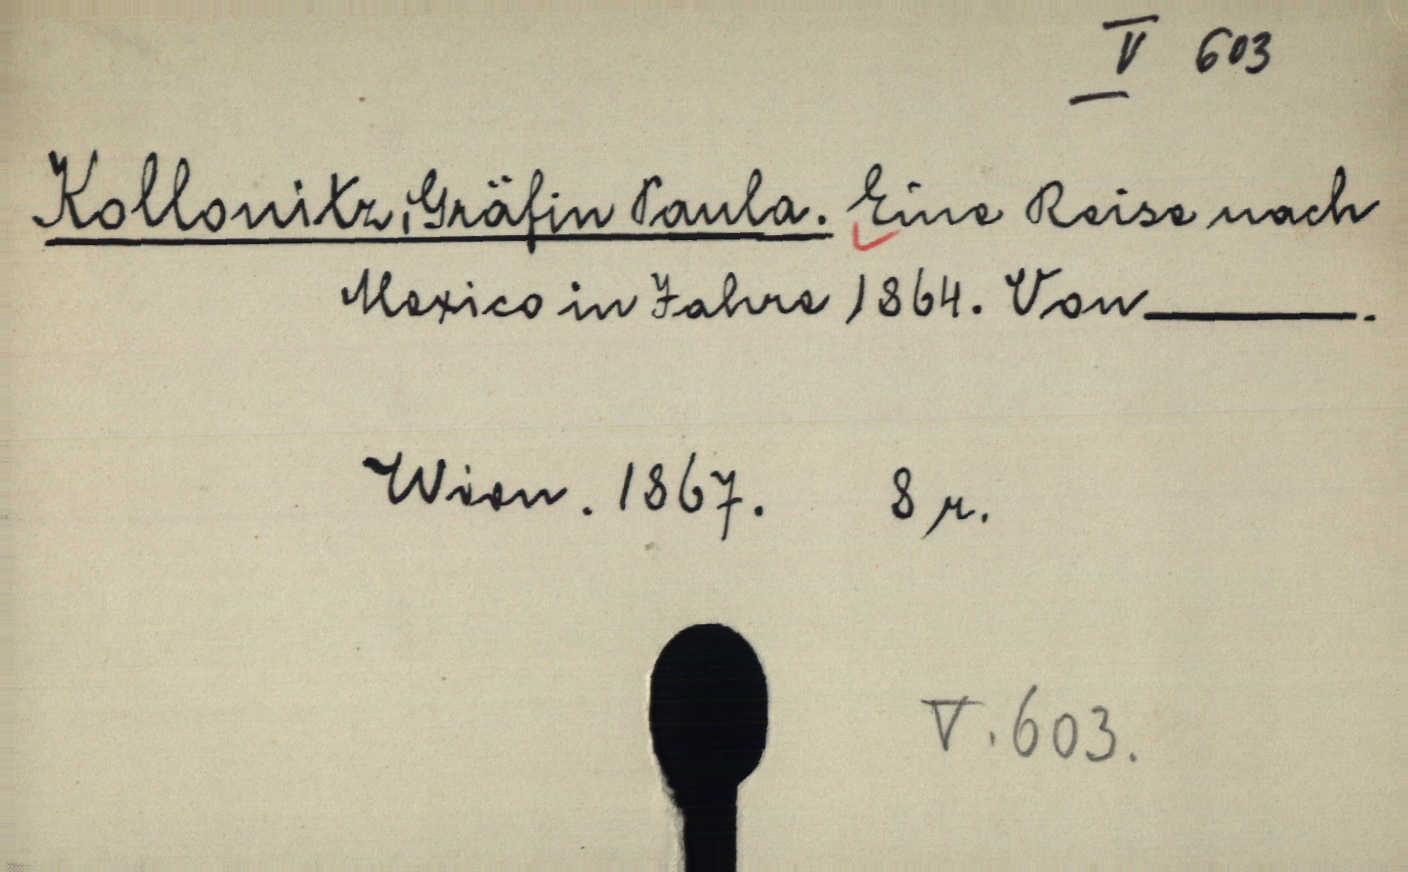 V 603
Kollonitz, Gräfin Paula. Eine Reise nach
Mexico in Jahre 1864. Von ______.
Wien. 1867. 8 r.
V. 603.